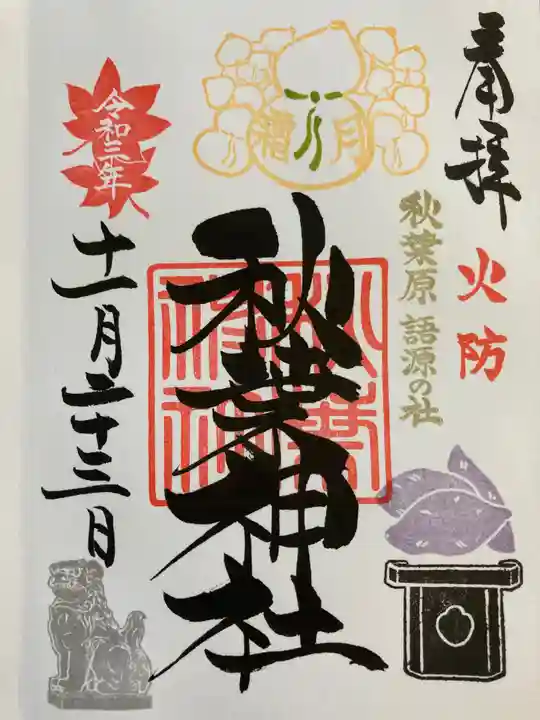 奉拝
火防
秋葉原 語源の社
霜月
秋葉神社
令和二年
十一月二十三日